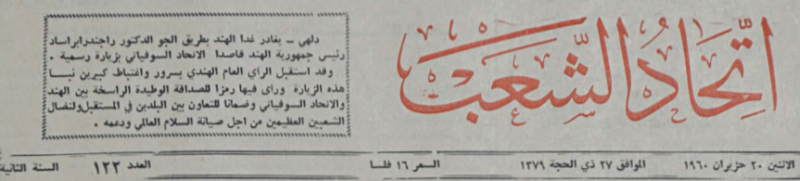 اتحاد الشعب
دلهي ــ يغادر غدا الهند بطريق الجو الدكتور راجندرابراساد
رئيس جمهورية الهند قاصدا الاتحاد السوفياتي بزيارة رسمية .
وقد استقبل الراي العام الهندي بسرور واغتباط كبيرين نبا
هذه الزيارة وراى فيها رمزا للصداقة الوطيدة الراسخة بين الهند
والاتحاد السوفياتي وضمانا للتعاون بين البلدين في المستقبل ولنضال
الشعبين العظيمين من اجل صيانة السلام العالمي ودعمه .
الاثنين ٢٠ حزيران ١٩٦٠ الموافق ٢٧ ذي الحجة ١٣٧٩ السعر ١٦ فلسا العدد ١٢٢ السنة الثانية